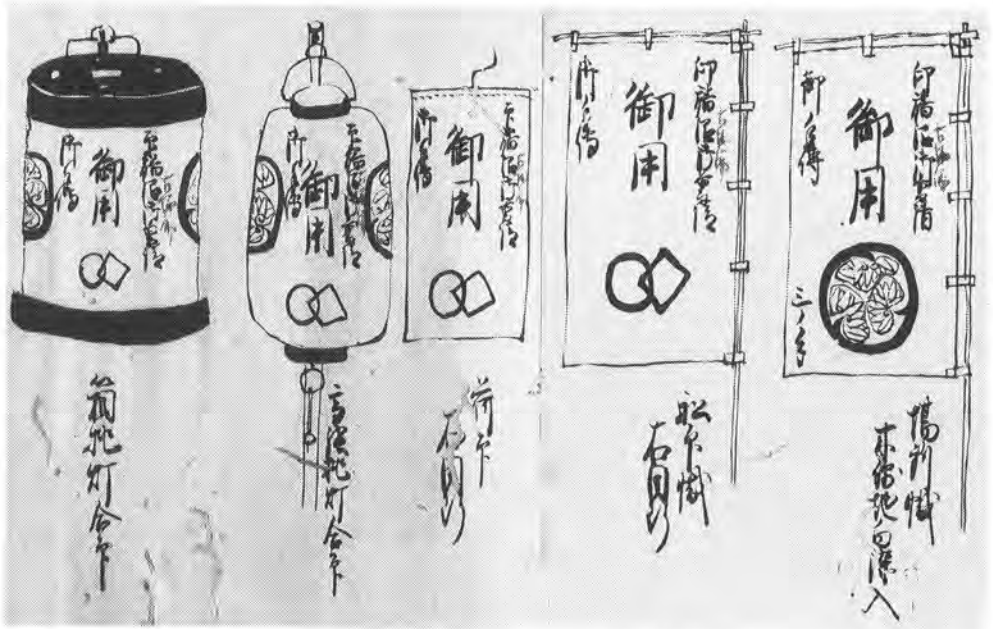 印旛沼御普請
御用
御手傳
場所幟
印旛沼御普請
御用
御手傳
舩印幟
右同断
印旛沼御普請
御用
御手傳
荷印
右同断
印旛沼御普請
御用
御手傳
高張挑灯合印
印旛沼御普請
御用
御手傳
箱挑灯合印